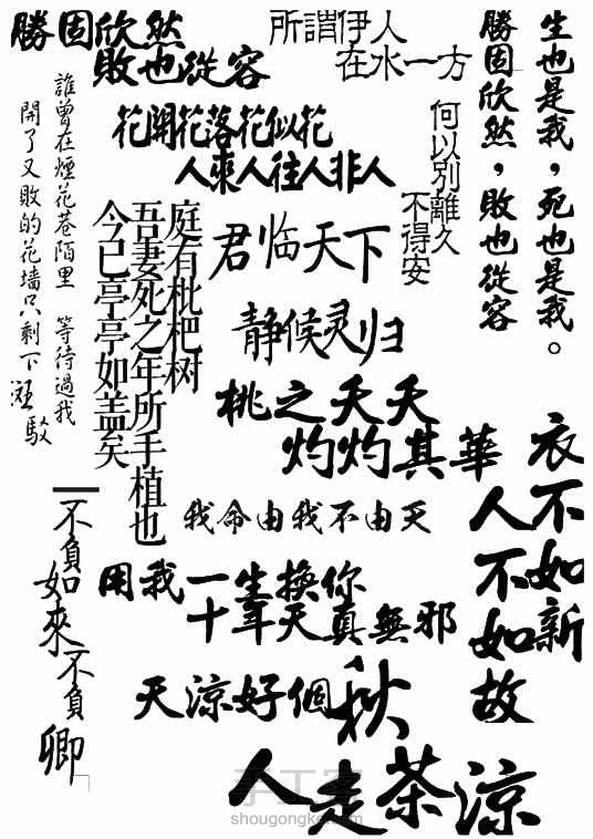 勝固欣然
敗也從容
所謂伊人
在水一方
生也是我，死也是我。
勝固欣然，敗也從容
何以別離久
不得安
誰曾在煙花巷陌里 等待過我
開了又敗的花墙只剩下斑駁
花開花落花似花
人來人往人非人
庭有枇杷树
吾妻死之年所手植也
今已亭亭如盖矣
君临天下
静候灵归
桃之夭夭
灼灼其華
衣不如新
人不如故
我命由我不由天
用我一生換你
十年天真無邪
一不負如來不負卿
天涼好個秋
人走茶涼
手工客
shougongke.com